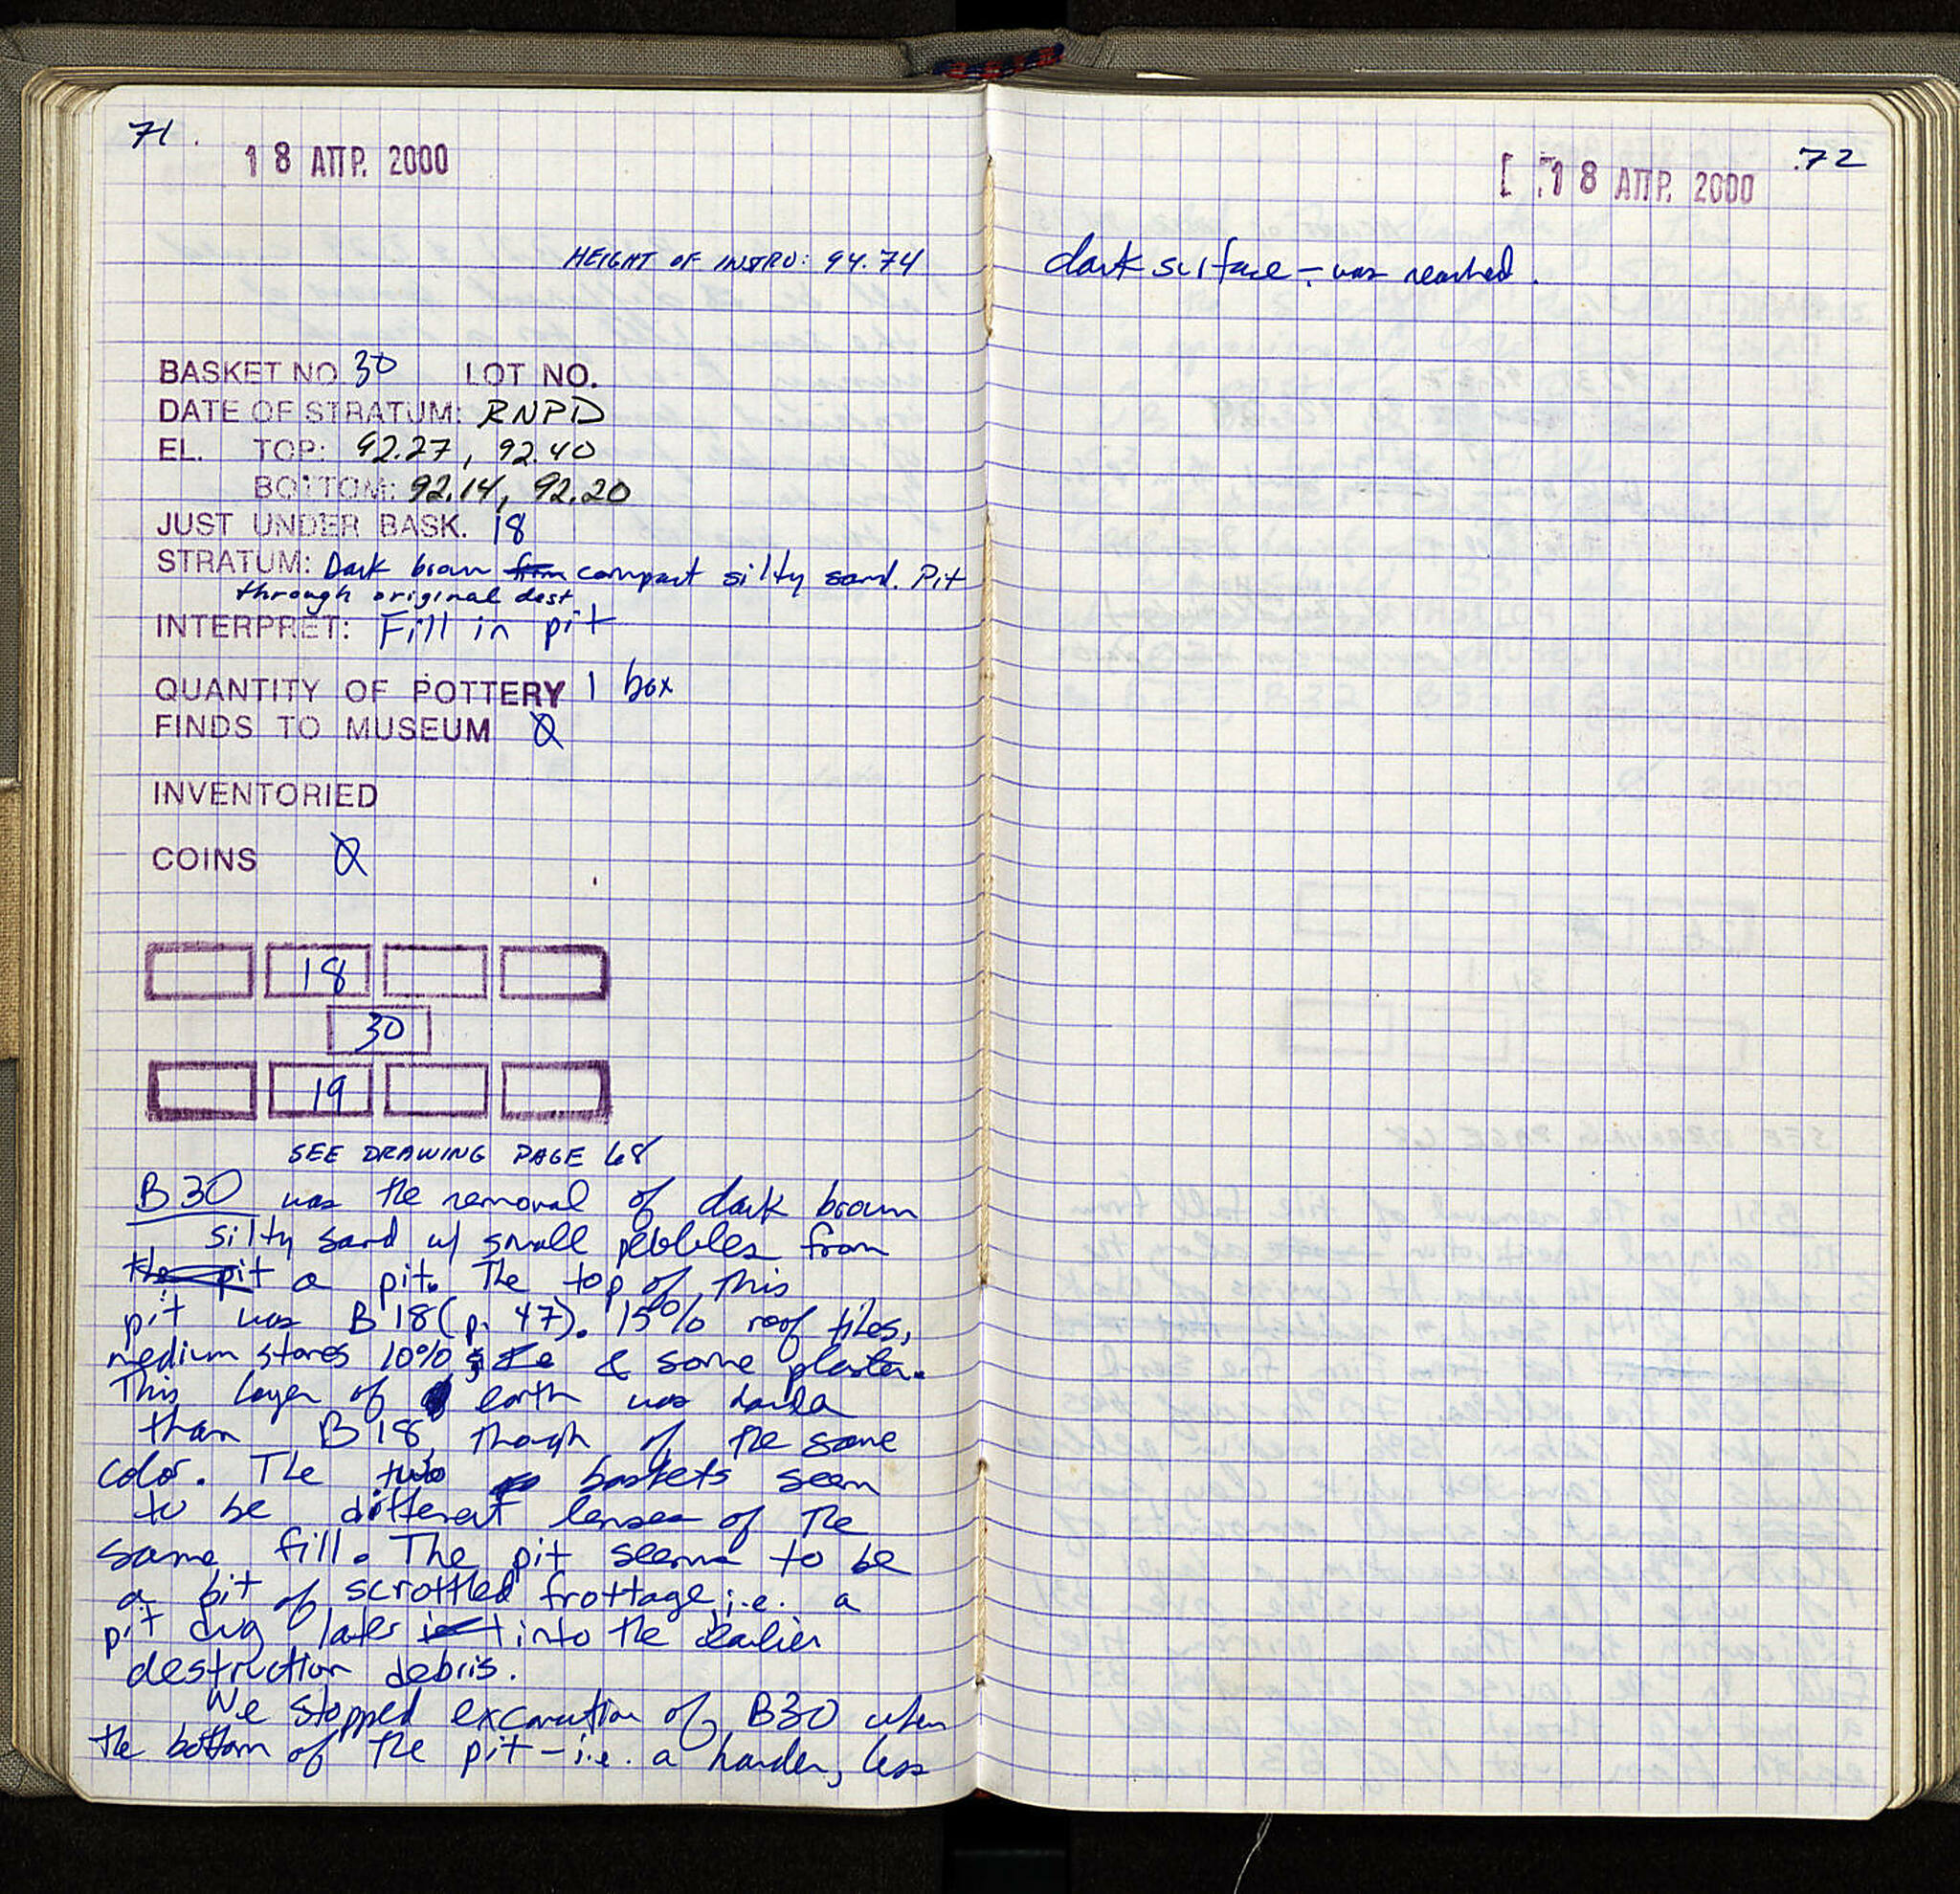 71.
18 ΑΠΡ. 2000
HEIGHT OF INSTRU: 94.74
BASKET NO. 30 LOT NO.
DATE OF STRATUM: RNPD
EL. TOP: 92.27, 92.40
BOTTOM: 92.14, 92.20
JUST UNDER BASK. 18
STRATUM: Dark brown firm compact silty sand. Pit
through original dest.
INTERPRET: Fill in pit
QUANTITY OF POTTERY 1 box
FINDS TO MUSEUM Ø
INVENTORIED
COINS Ø
18
30
19
SEE DRAWING PAGE 68
B30 was the removal of dark brown
silty sand w/ small pebbles from
the pit a pit. The top of this
pit was B18 (p. 47). 15% roof tiles,
medium stones 10% & some plaster.
This layer of earth was harder
than B18, though of the same
color. The two baskets seem
to be different lenses of the
same fill. The pit seems to be
a pit of scrottled frottage, i.e. a
pit dug later into the earlier
destruction debris.
We stopped excavation of B30 when
the bottom of the pit - i.e. a harder, less
.72
18 ΑΠΡ. 2000
dark surface - was reached.